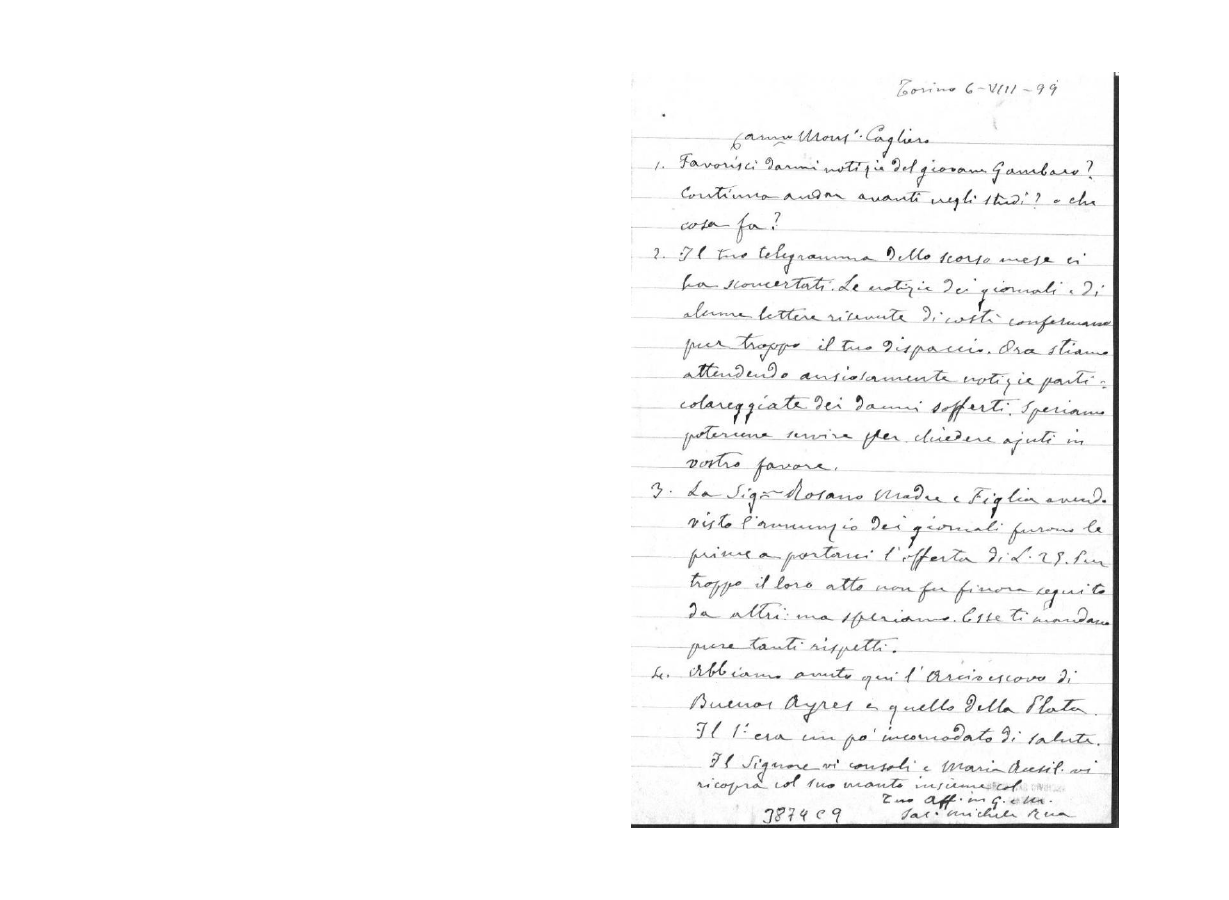 Torino 6-VIII-99
Carmo Monsr. Cagliero
1. Favorisci darmi notizie del giovane Gambaro?
Continua andar avanti negli studi? o che
cosa fa?
2. Il tuo telegramma dello scorso mese ci
ha sconcertati. Le notizie dei giornali e di
alcune lettere ricevute di costì confermano
pur troppo il tuo dispaccio. Ora stiamo
attendendo ansiosamente notizie parti-
colareggiate dei danni sofferti. Speriamo
potercene servire per chiedere ajuti in
vostro favore.
3. La Sigra Rosano Madre e Figlia avendo
visto l'annunzio dei giornali furono le
prime a portarci l'offerta di L. 25. Pur
troppo il loro atto non fu finora seguito
da altri: ma speriamo. Esse ti mandano
pure tanti rispetti.
4. Abbiamo avuto qui l'Arcivescovo di
Buenos Ayres e quello della Plata.
Il 1° era un po' incomodato di salute.
Il Signore vi consoli e Maria Ausil. vi
ricopra col suo manto insieme col
Tuo aff. in G. e M.
Sac. Michele Rua
3874 C 9